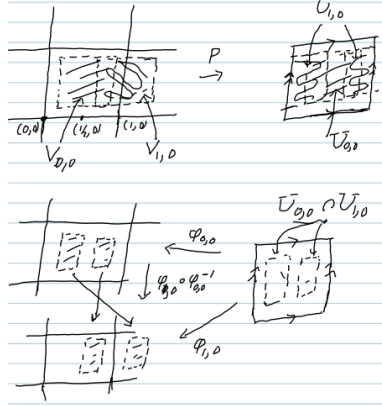 U₁,₀
P
(0,0)
(½,0)
(1,0)
V₀,₀
V₁,₀
U₀,₀
U₀,₀ ∩ U₁,₀
φ₀,₀
φ₁,₀